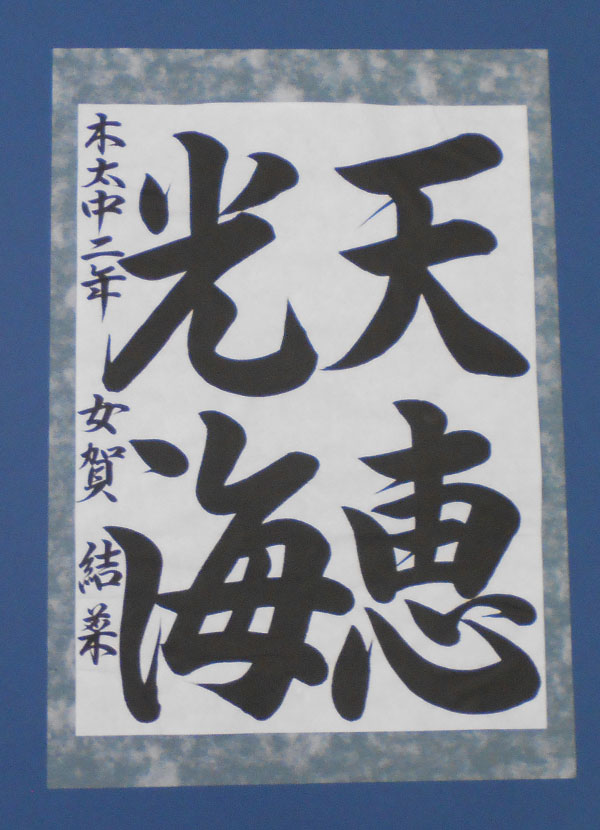 天恵
光海
木太中二年 女賀 結菜